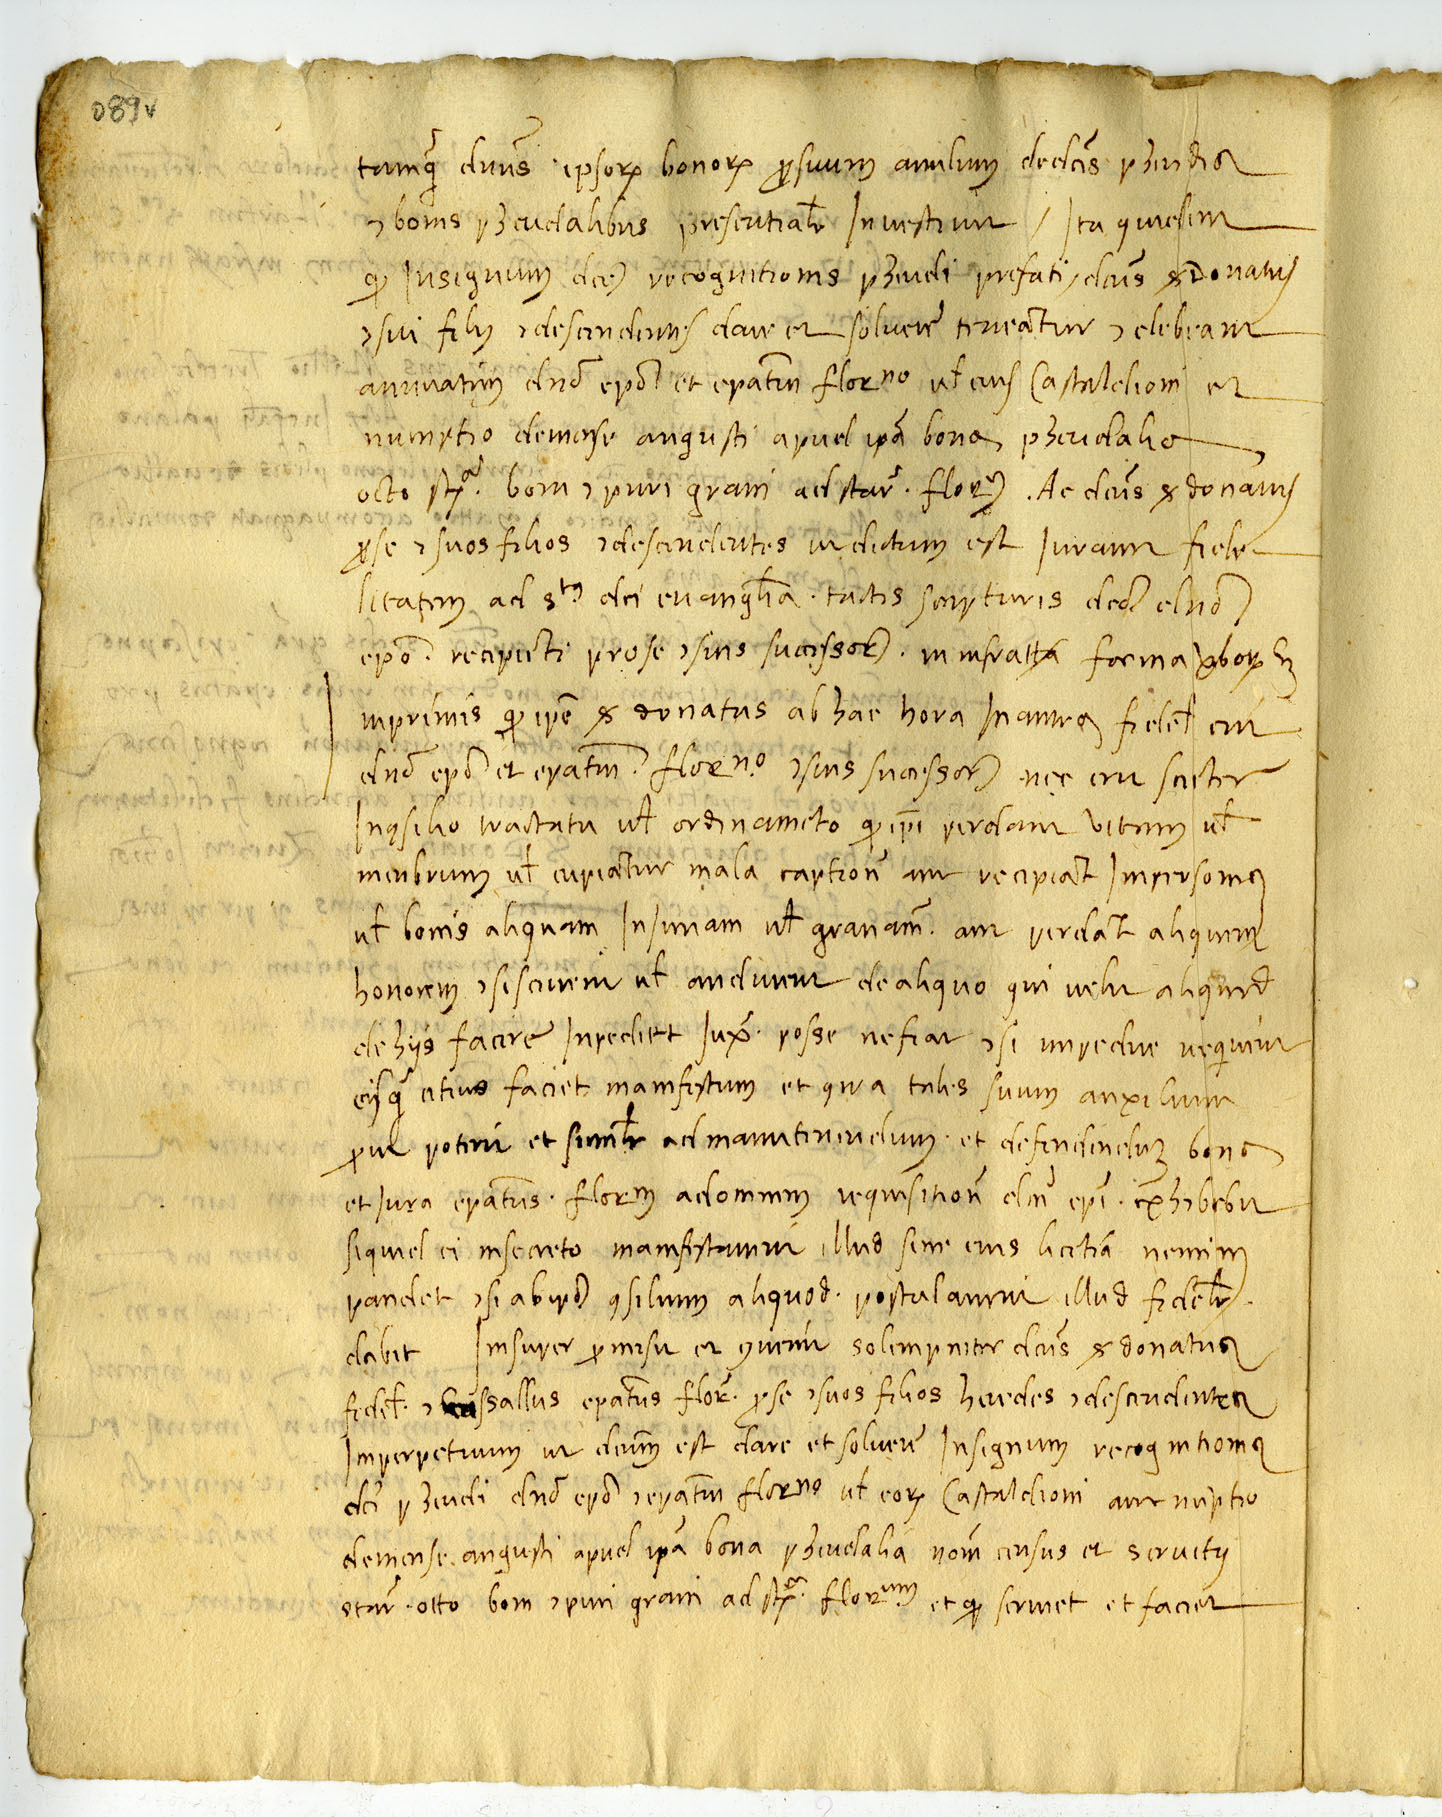 089v
tamq̃ dnũs ipsoꝝ bonoꝝ ꝓ suum anulum de dc̃is pheudis
⁊ bonis pheudalibus presentialr̃ Investiuit / Ita quidem
ꝙ In signum dce recognitionis pheudi prefati dcũs s donatus
⁊ sui filij ⁊ descendentes dare et soluere teneãtur ⁊ debeant
annuatim dno epõ et epatui florno ut̃ eius Castaldioni et
numptio de mense augusti apud ipã bona pheudalia
octo star. boni ⁊ puri grani ad star. flor. Ac dcũs s donatus
ꝓ se ⁊ suos filios ⁊ descendentes ut dictum est Iurauit fide
litatem ad sta dei euanglia. tactis scripturis dco dno
epõ. recipienti pro se ⁊ suis successor. in infratta forma verboꝝ
Inprimis ꝙ ipẽ s donatus ab hac hora In antea fidel̃ erit
dno epõ et epatui florno. ⁊ suis successor nec erit scieter
In ꝯsilio tractatu ut̃ ordinamẽto ꝙ ipĩ perdant vitam ut̃
menbrum ut̃ capiãtur mala captionẽ aut recipiãt In personis
ut̃ bonis aliquam Iniuriam ut̃ grauam̃. aut perdãt aliquem
honorem ⁊ si sciuerit ut̃ audiuerit de aliquo qui uelit aliquid
de hijs facere Inpediet Iuxa. posse ne fiat ⁊ si impedire nequiuerit
eisq̃ citius faciet manifestum et ꝯtra tales suum auxilium
prout poterit et similr̃ ad manutenendum et defendendum bona
et Iura epatus. florni ad omnem requisitionẽ dni epĩ. exhibebit
si quid ei in secreto manifestauerit illud sine eius licẽtia nemini
pandet ⁊ si ab ipo ꝯsilium aliquod. postulauerit illud fidelr̃.
dabit Insuper promisit et ꝯuenit solempniter dcũs s donatus
fidel̃. ⁊ uassallus epatus flor. ꝓ se ⁊ suos filios heredes ⁊ descendentes
Imperpetuum ut dictum est dare et soluere In signum recognitionis
dci pheudi dno epõ ⁊ epatui florno ut̃ eoꝝ Castaldioni aut nuptio
de mense augusti apud ipã bona pheudalia nom̃ census et seruitij
star. otto boni ⁊ puri grani ad star. florum et ꝙ seruiet et faciet